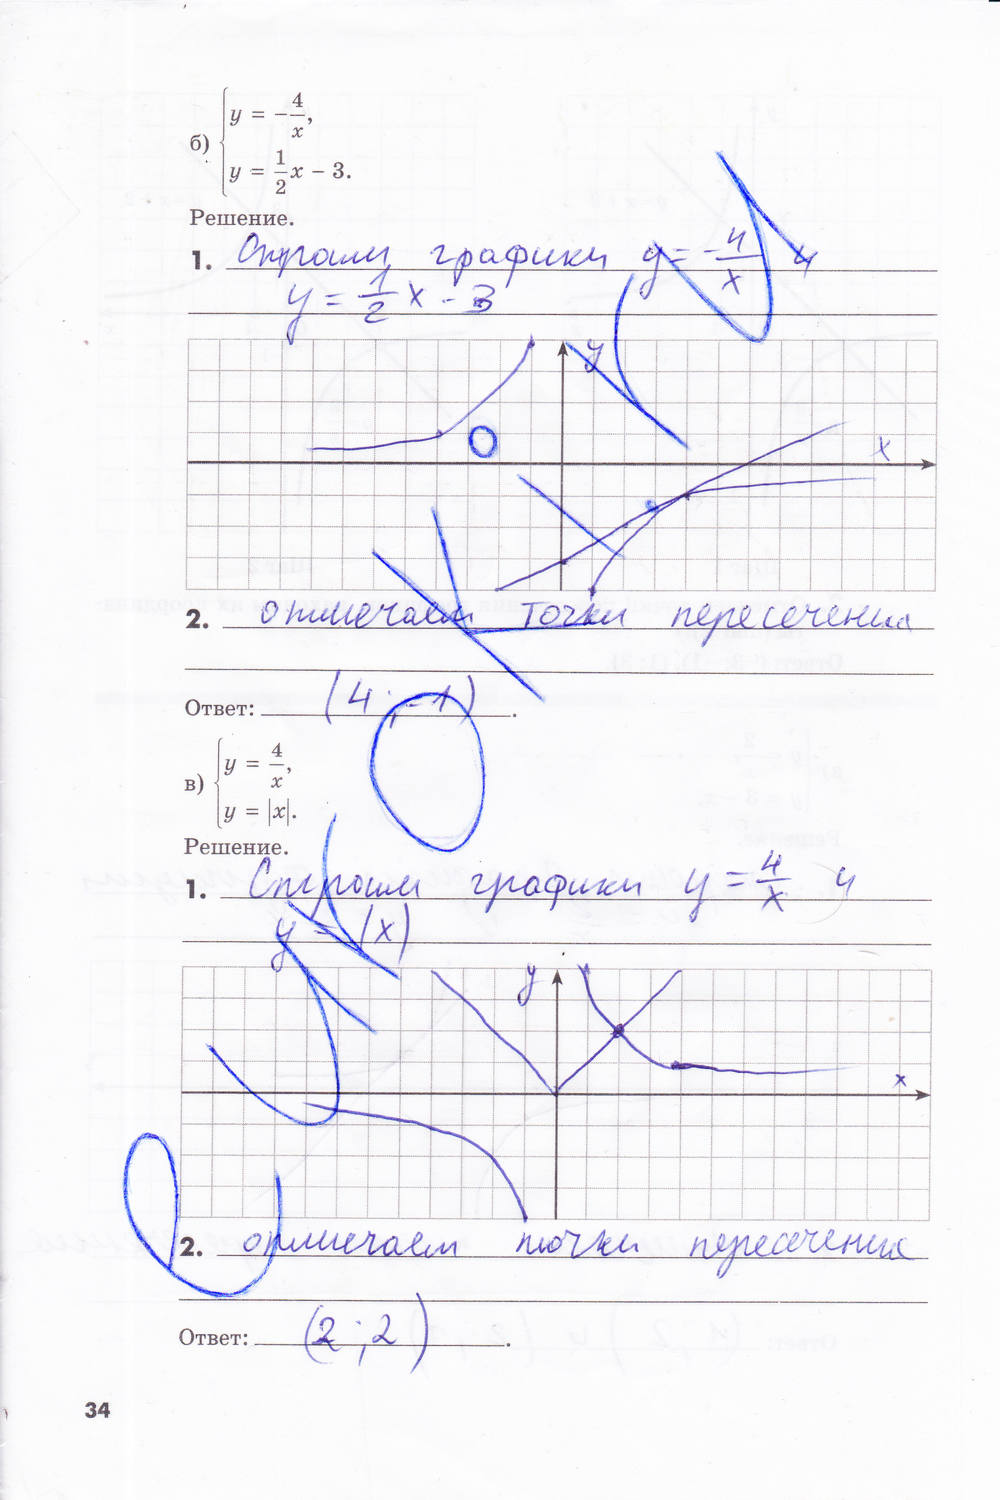 б) { y = -4/x,
y = 1/2 x - 3.
Решение.
1. Строим графики y = -4/x и
y = 1/2 x - 3
y
x
2. отмечаем точки пересечения
Ответ: (4 ; -1).
в) { y = 4/x,
y = |x|.
Решение.
1. Строим графики y = 4/x и
y = |x|
y
x
2. отмечаем точки пересечения
Ответ: (2 ; 2).
34